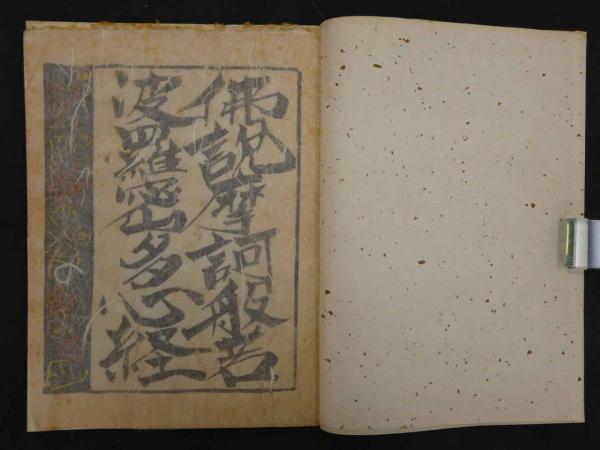 佛説摩訶般若
波羅蜜多心経